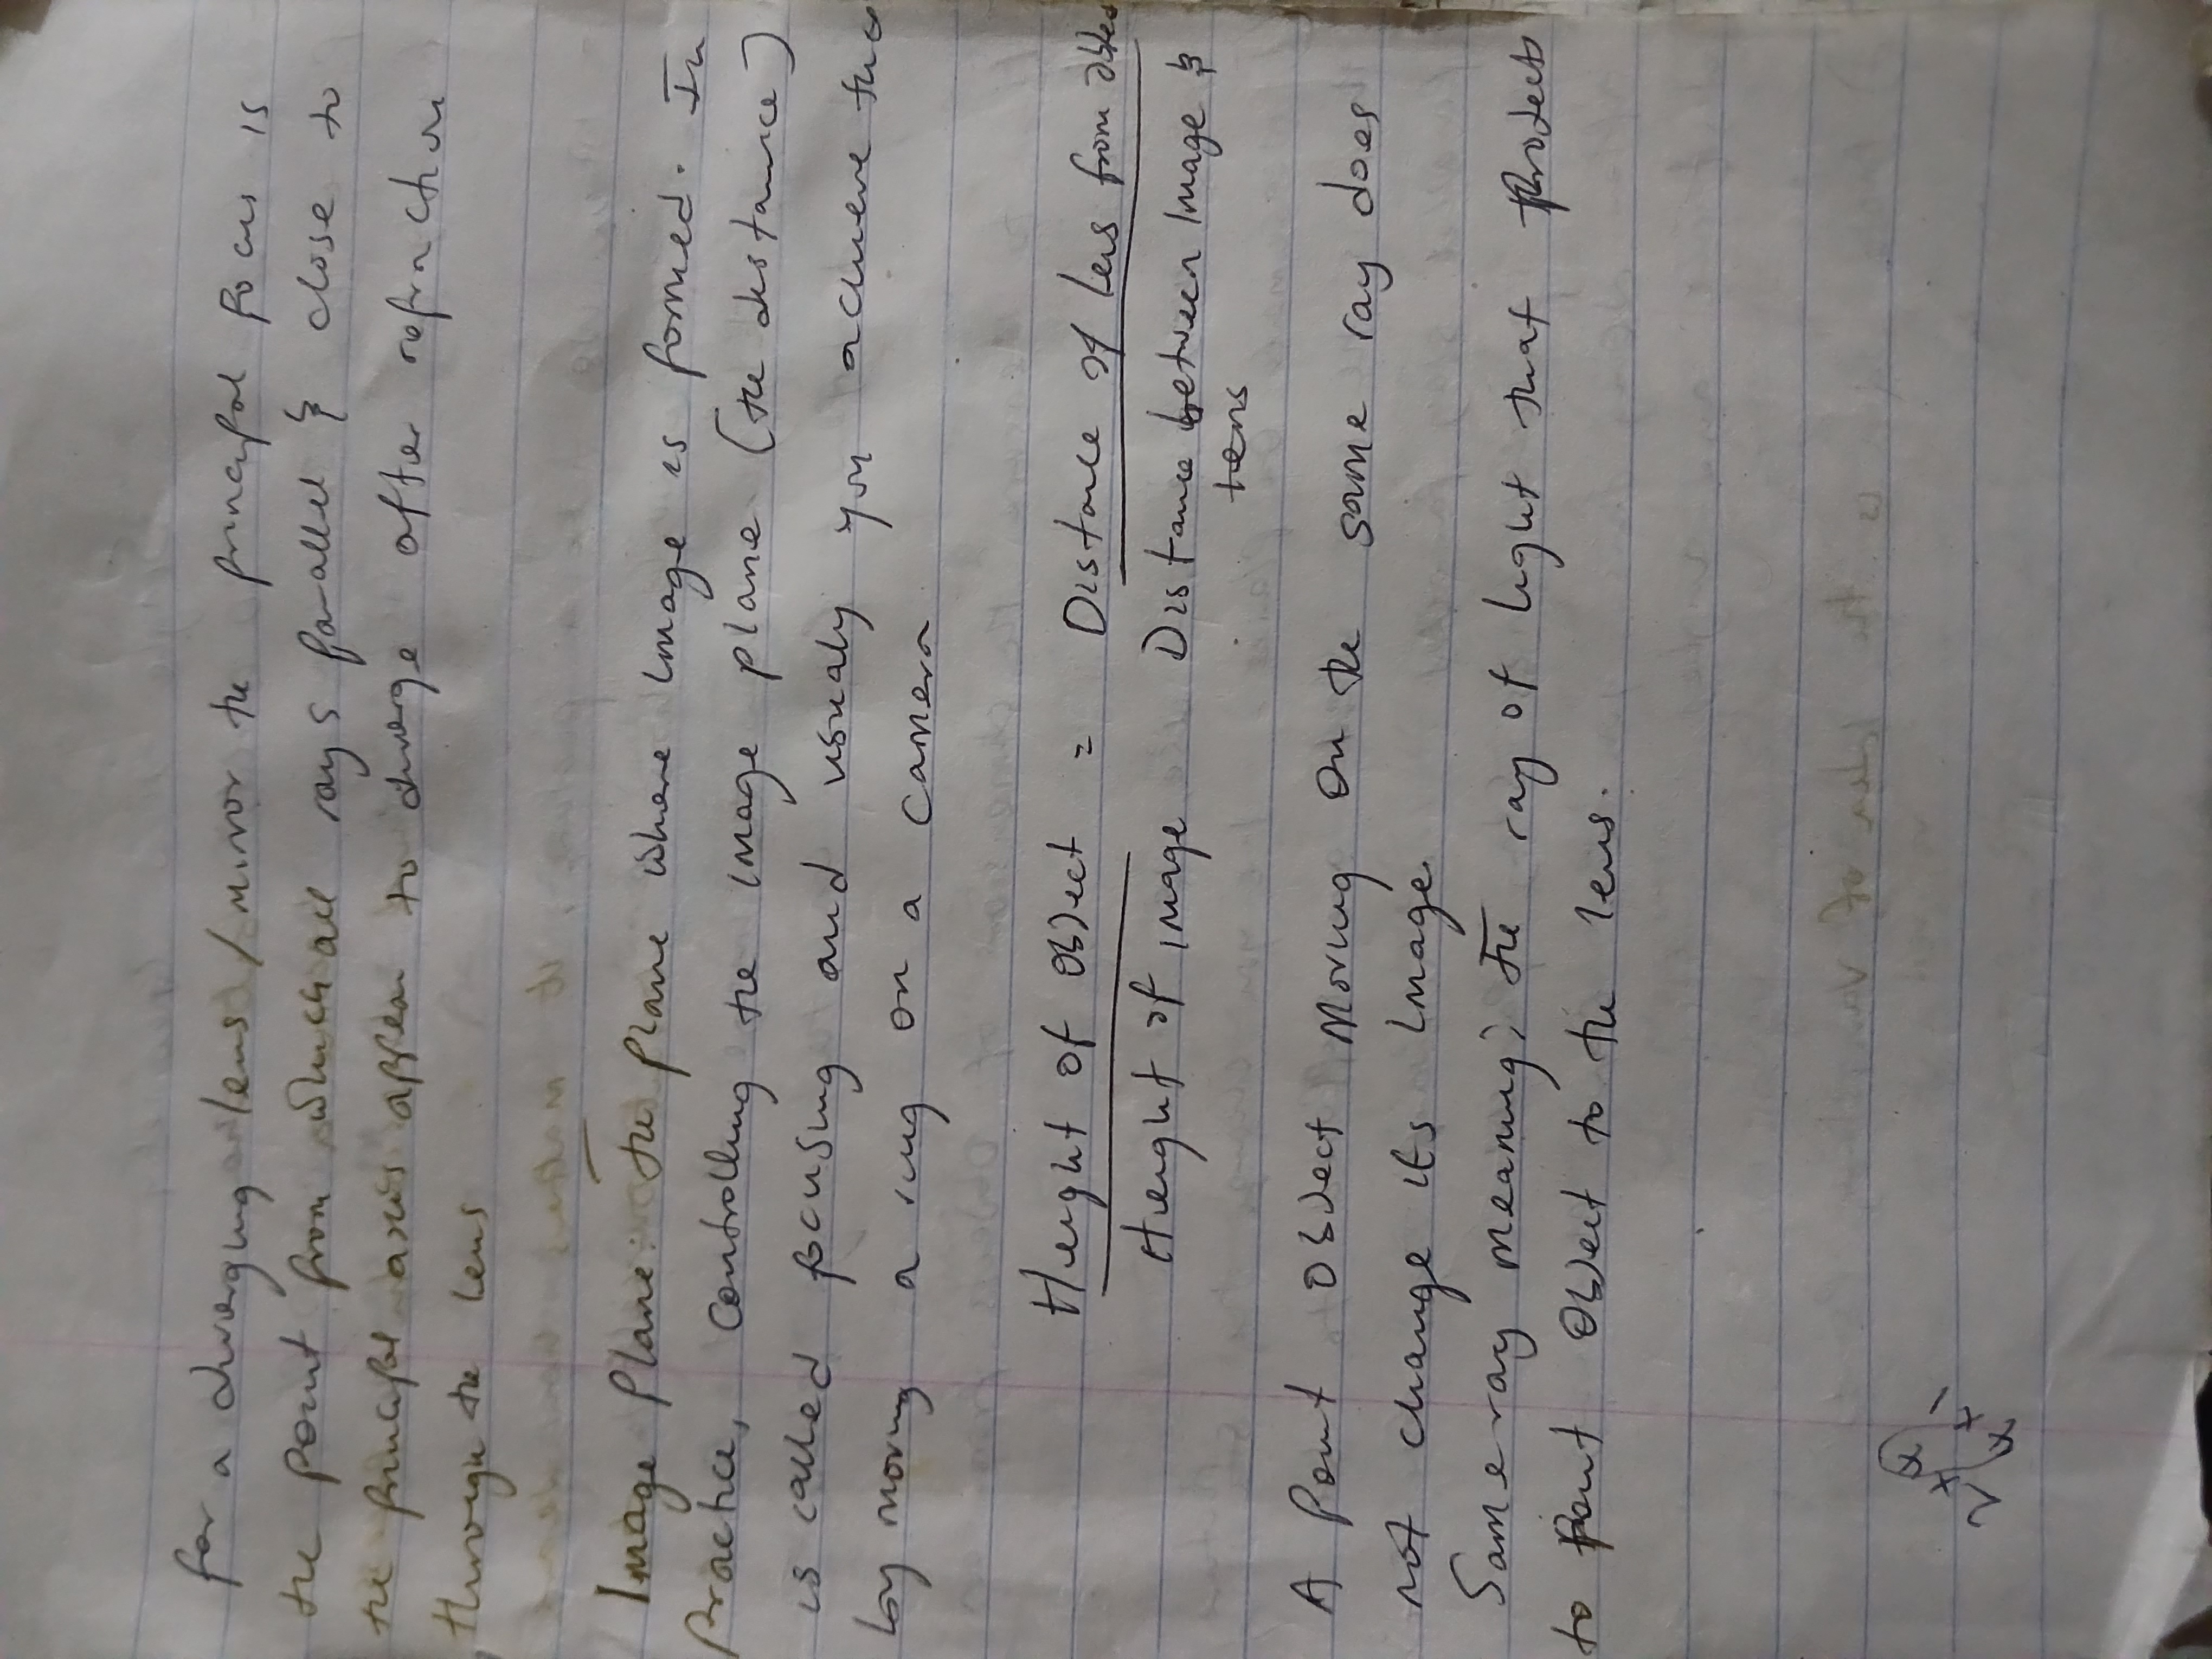 for a diverging lens / mirror the principal focus is
the point from which all rays parallel & close to
the principal axis appear to diverge after refraction
through the lens
Image Plane: The plane where image is formed. In
Practice, controlling the image plane (the distance)
is called focusing and usually you achieve this
by moving a ring on a camera
Height of Object = Distance of lens from object
Height of image Distance between Image &
lens
A Point Object moving on the same ray does
not change its image.
Same ray meaning; The ray of light that Projects
to Point Object to the lens.
2x4
4x1